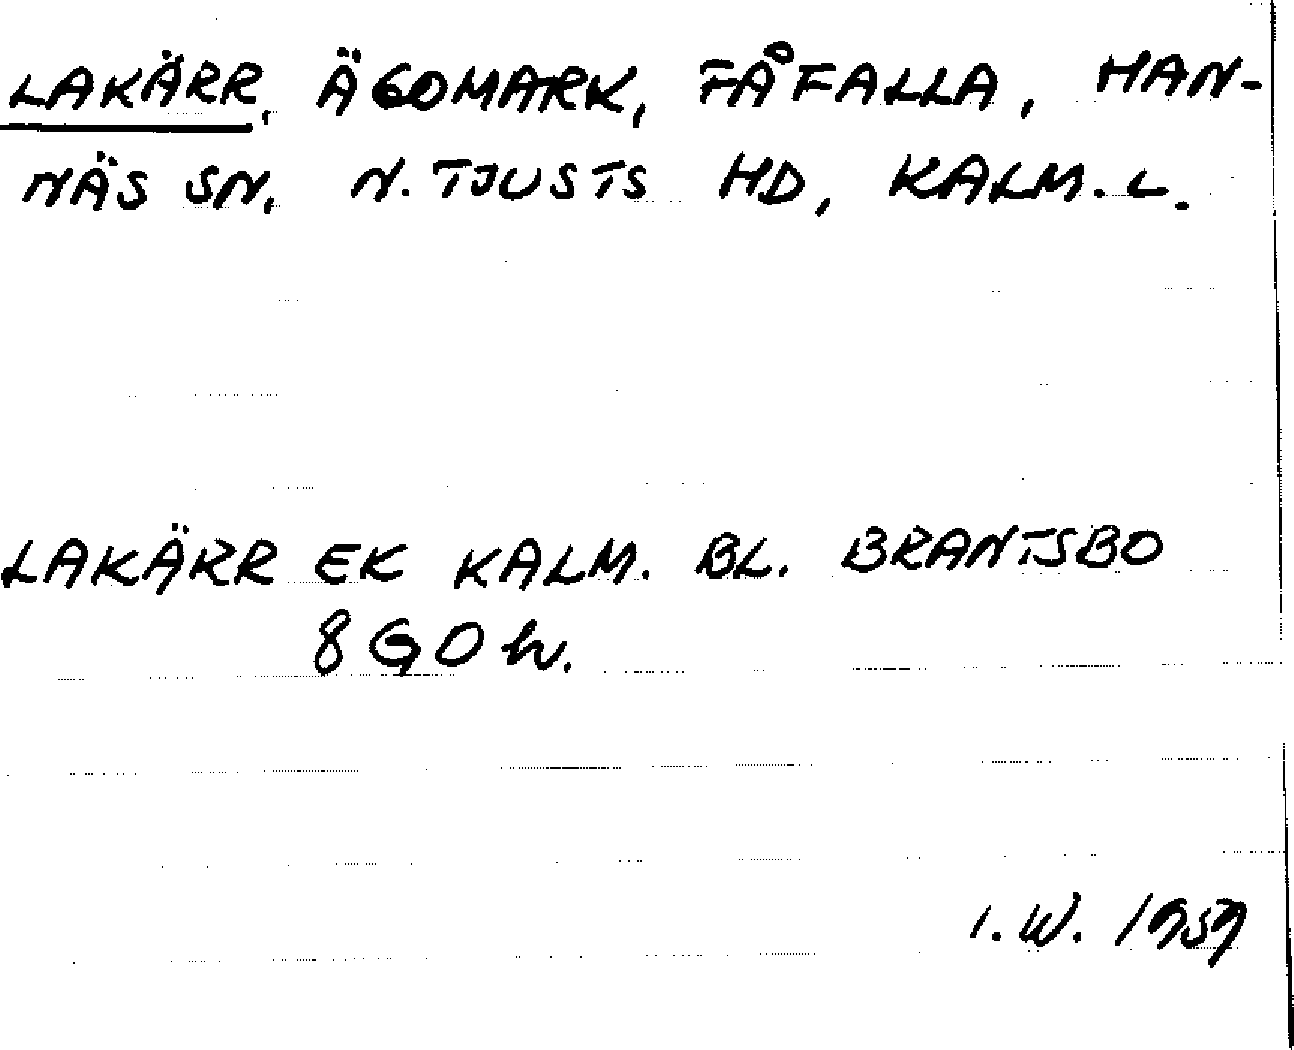 LAKÄRR, ÄGOMARK, FÅFALLA, HAN-
NÄS SN. N. TJUSTS HD, KALM. L.
LAKÄRR EK KALM. BL. BRANTSBO
8 G O h.
I. W. 1959